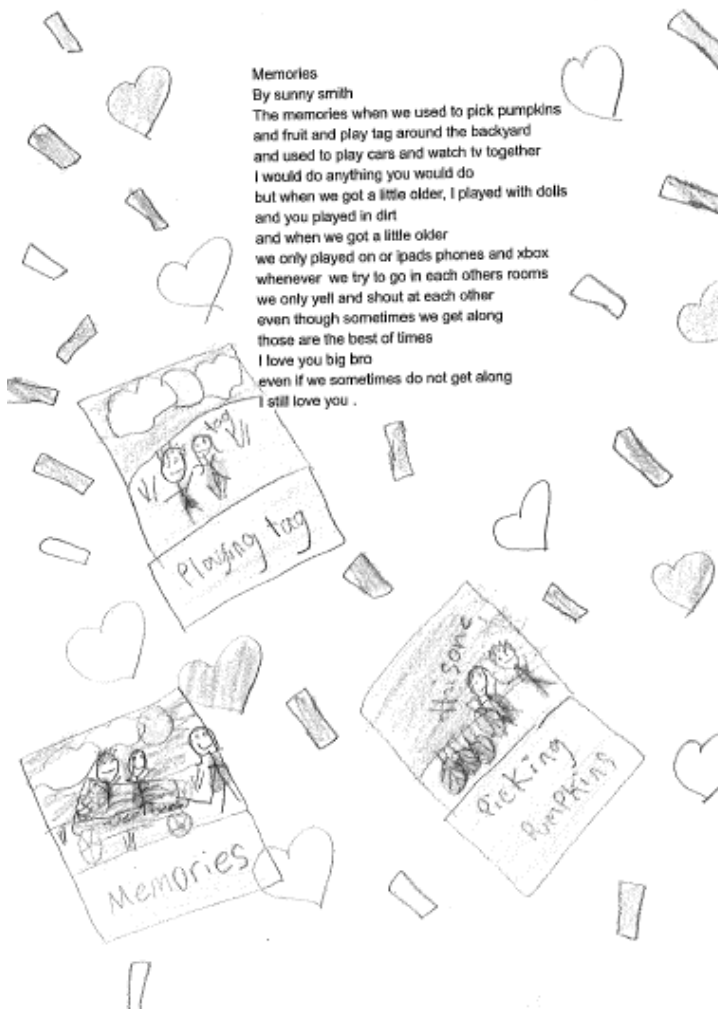 Memories
By sunny smith
The memories when we used to pick pumpkins
and fruit and play tag around the backyard
and used to play cars and watch tv together
I would do anything you would do
but when we got a little older, I played with dolls
and you played in dirt
and when we got a little older
we only played on or ipads phones and xbox
whenever we try to go in each others rooms
we only yell and shout at each other
even though sometimes we get along
those are the best of times
I love you big bro
even if we sometimes do not get along
I still love you .
tag
Playing tag
this one
Picking
Pumpkins
Memories